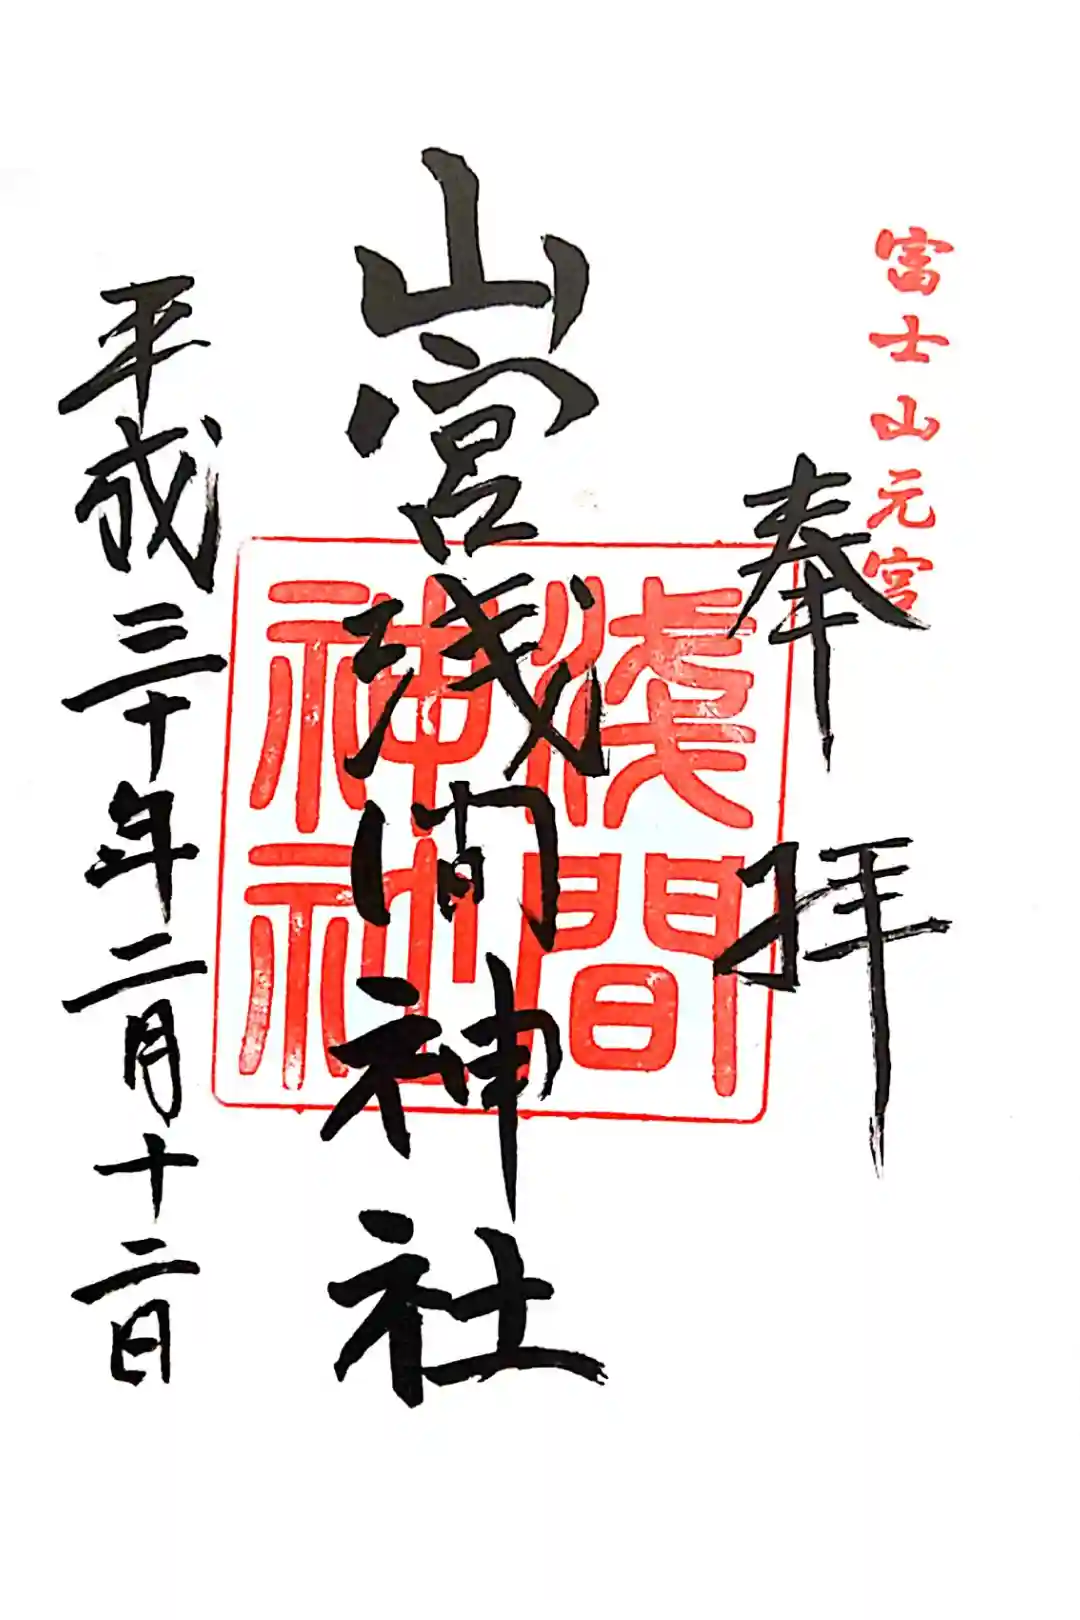 富士山元宮
奉拝
山宮浅間神社
淺間
神社
平成三十年二月十二日